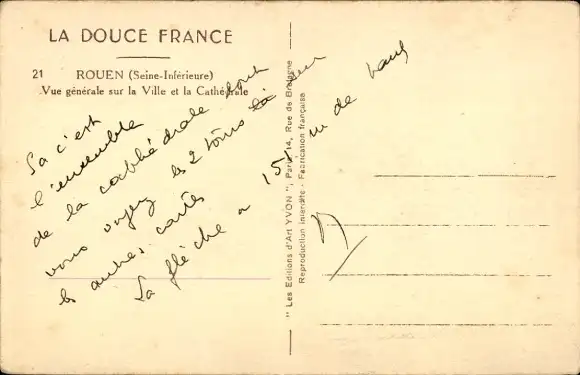 LA DOUCE FRANCE
21 ROUEN (Seine-Inférieure)
Vue générale sur la Ville et la Cathédrale
Sa c'est
l'ensemble
de la cathédrale dont
vous voyez les 2 tours là sur
les autres cartes
La flèche a 151 m de haut
" Les Editions d'Art YVON ", Paris 14, Rue de Bretagne
Reproduction interdite - Fabrication française